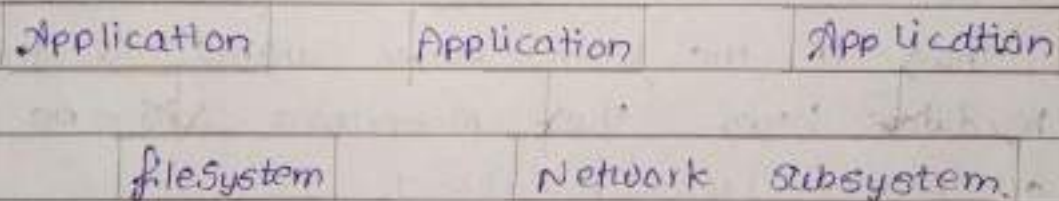 Application Application Application
filesystem Network subsystem.